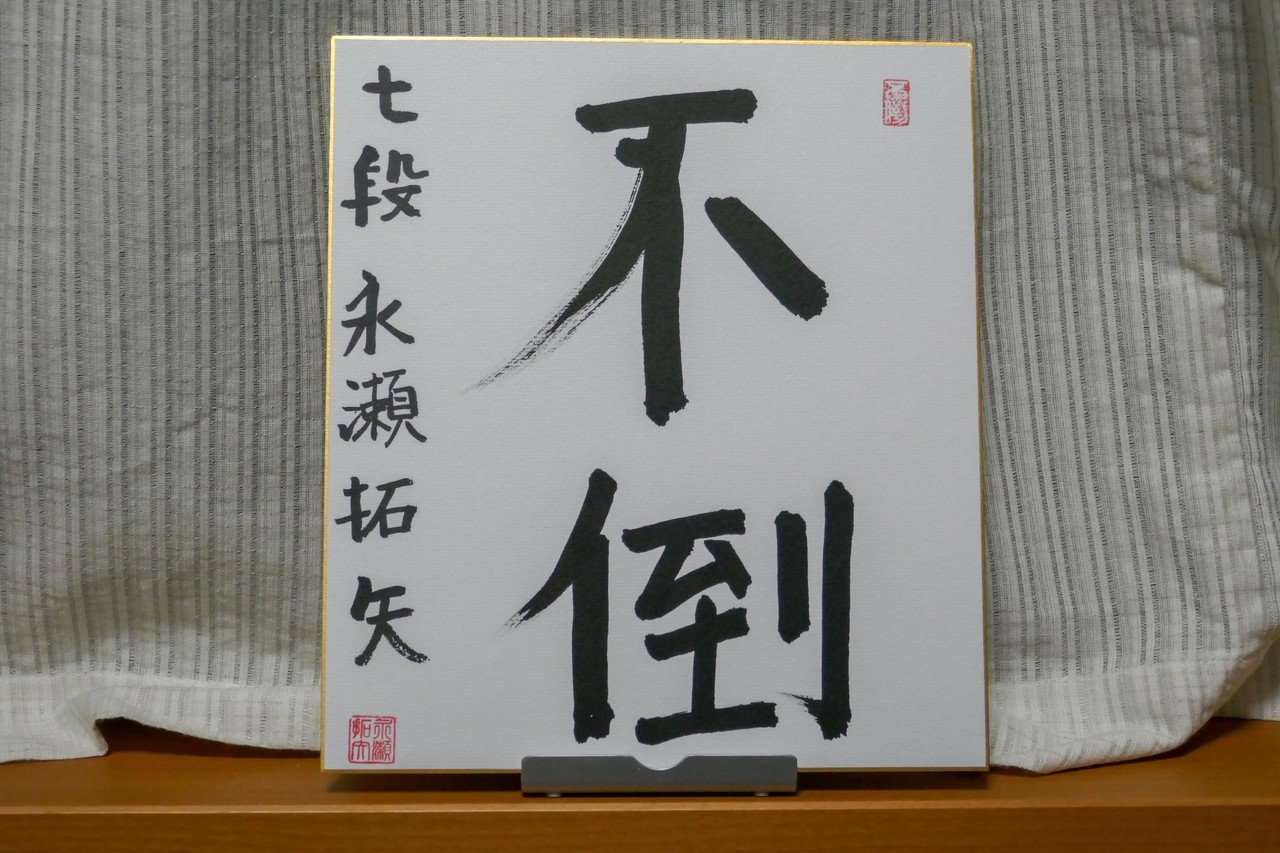 不倒
七段 永瀬拓矢
永瀬拓矢